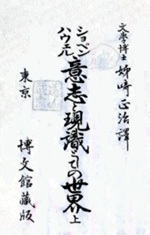 文学博士 姉崎正治譯
ショペンハウエル
意志と現識としての世界 上
東京 博文館藏版